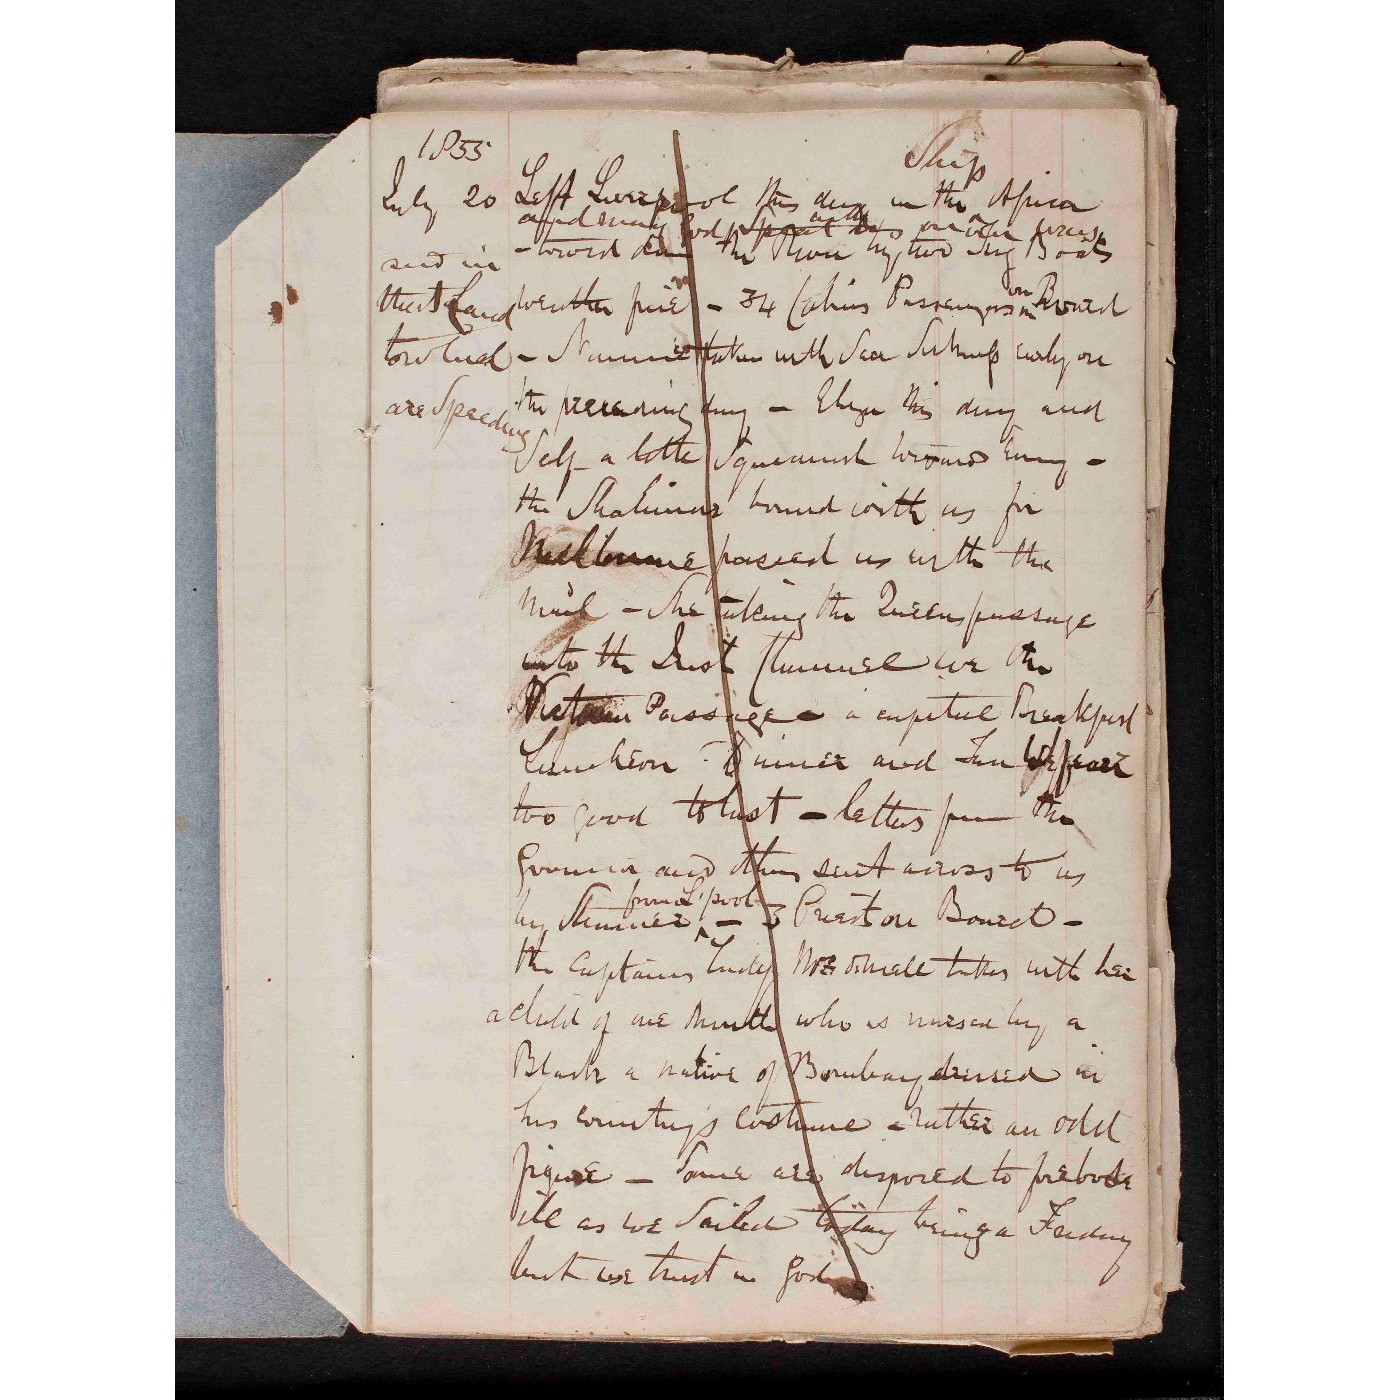 1855
Ship
July 20 Left Liverpool this day in the Africa
and may God Speed us on our
toward down the River by two Tug Boats
send in
that Land weather fine - 34 Cabin Passengers on Board
toward - taken with Sea Sickness early on
are Speeding the preceding day - Eliza this day and
Self a little Squeamish towards Eveng -
the Shalimar bound with us for
Melbourne passed us with the
Mail - She taking the Queens passage
into the Irish Channel we the
Victoria Passage - a capital Breakfast
Luncheon - Dinner and Tea we fear
too good to last - letters from the
Governor and others sent across to us
by Steamer from L'pool - 3 Priest on Board -
the Captains Lady takes with her
a child of one Month who is nursed by a
Black a native of Bombay dressed in
his country's costume - rather an odd
figure - Some are disposed to forebode
ill as we Sailed today being a Friday
but we trust in God